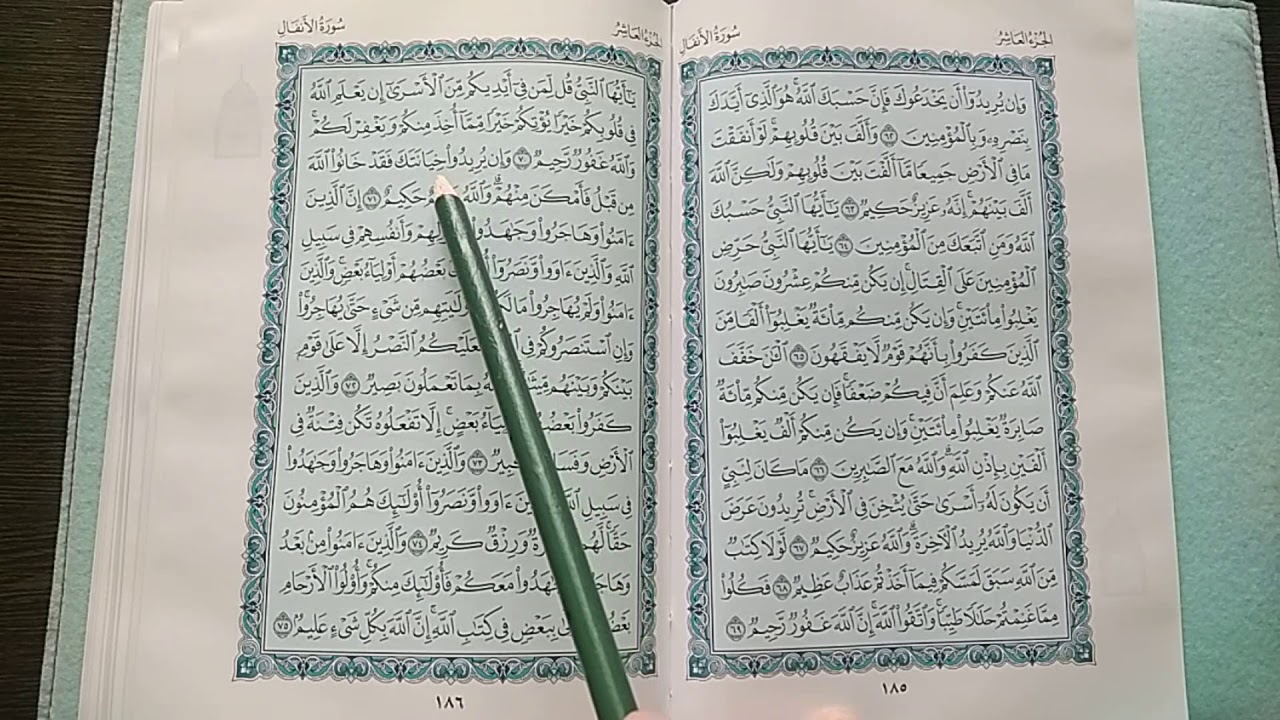 الجزء العاشر
سورة الأنفال
وَإِن يُرِيدُوٓا۟ أَن يَخْدَعُوكَ فَإِنَّ حَسْبَكَ ٱللَّهُ هُوَ ٱلَّذِىٓ أَيَّدَكَ
بِنَصْرِهِۦ وَبِٱلْمُؤْمِنِينَ ٦٢ وَأَلَّفَ بَيْنَ قُلُوبِهِمْ لَوْ أَنفَقْتَ
مَا فِى ٱلْأَرْضِ جَمِيعًا مَّآ أَلَّفْتَ بَيْنَ قُلُوبِهِمْ وَلَٰكِنَّ ٱللَّهَ
أَلَّفَ بَيْنَهُمْ إِنَّهُۥ عَزِيزٌ حَكِيمٌ ٦٣ يَٰٓأَيُّهَا ٱلنَّبِىُّ حَسْبُكَ
ٱللَّهُ وَمَنِ ٱتَّبَعَكَ مِنَ ٱلْمُؤْمِنِينَ ٦٤ يَٰٓأَيُّهَا ٱلنَّبِىُّ حَرِّضِ
ٱلْمُؤْمِنِينَ عَلَى ٱلْقِتَالِ إِن يَكُن مِّنكُمْ عِشْرُونَ صَٰبِرُونَ
يَغْلِبُوا۟ مِا۟ئَتَيْنِ وَإِن يَكُن مِّنكُم مِّا۟ئَةٌ يَغْلِبُوٓا۟ أَلْفًا مِّنَ
ٱلَّذِينَ كَفَرُوا۟ بِأَنَّهُمْ قَوْمٌ لَّا يَفْقَهُونَ ٦٥ ٱلْـَٰٔنَ خَفَّفَ
ٱللَّهُ عَنكُمْ وَعَلِمَ أَنَّ فِيكُمْ ضَعْفًا فَإِن يَكُن مِّنكُم مِّا۟ئَةٌ
صَابِرَةٌ يَغْلِبُوا۟ مِا۟ئَتَيْنِ وَإِن يَكُن مِّنكُمْ أَلْفٌ يَغْلِبُوٓا۟
أَلْفَيْنِ بِإِذْنِ ٱللَّهِ وَٱللَّهُ مَعَ ٱلصَّٰبِرِينَ ٦٦ مَا كَانَ لِنَبِىٍّ
أَن يَكُونَ لَهُۥٓ أَسْرَىٰ حَتَّىٰ يُثْخِنَ فِى ٱلْأَرْضِ تُرِيدُونَ عَرَضَ
ٱلدُّنْيَا وَٱللَّهُ يُرِيدُ ٱلْـَٔاخِرَةَ وَٱللَّهُ عَزِيزٌ حَكِيمٌ ٦٧ لَّوْلَا كِتَٰبٌ
مِّنَ ٱللَّهِ سَبَقَ لَمَسَّكُمْ فِيمَآ أَخَذْتُمْ عَذَابٌ عَظِيمٌ ٦٨ فَكُلُوا۟
مِمَّا غَنِمْتُمْ حَلَٰلًا طَيِّبًا وَٱتَّقُوا۟ ٱللَّهَ إِنَّ ٱللَّهَ غَفُورٌ رَّحِيمٌ ٦٩
١٨٥
الجزء العاشر
سورة الأنفال
يَٰٓأَيُّهَا ٱلنَّبِىُّ قُل لِّمَن فِىٓ أَيْدِيكُم مِّنَ ٱلْأَسْرَىٰٓ إِن يَعْلَمِ ٱللَّهُ
فِى قُلُوبِكُمْ خَيْرًا يُؤْتِكُمْ خَيْرًا مِّمَّآ أُخِذَ مِنكُمْ وَيَغْفِرْ لَكُمْ
وَٱللَّهُ غَفُورٌ رَّحِيمٌ ٧٠ وَإِن يُرِيدُوا۟ خِيَانَتَكَ فَقَدْ خَانُوا۟ ٱللَّهَ
مِن قَبْلُ فَأَمْكَنَ مِنْهُمْ وَٱللَّهُ حَكِيمٌ ٧١ إِنَّ ٱلَّذِينَ
ءَامَنُوا۟ وَهَاجَرُوا۟ وَجَٰهَدُوا۟ وَأَنفُسِهِمْ فِى سَبِيلِ
ٱللَّهِ وَٱلَّذِينَ ءَاوَوا۟ وَّنَصَرُوٓا۟ بَعْضُهُمْ أَوْلِيَآءُ بَعْضٍ وَٱلَّذِينَ
ءَامَنُوا۟ وَلَمْ يُهَاجِرُوا۟ مَا لَكُم وَلَٰيَتِهِم مِّن شَىْءٍ حَتَّىٰ يُهَاجِرُوا۟
وَإِنِ ٱسْتَنصَرُوكُمْ فِى فَعَلَيْكُمُ ٱلنَّصْرُ إِلَّا عَلَىٰ قَوْمٍۭ
بَيْنَكُمْ وَبَيْنَهُم بِمَا تَعْمَلُونَ بَصِيرٌ ٧٢ وَٱلَّذِينَ
كَفَرُوا۟ بَعْضُهُمْ بَعْضٍ إِلَّا تَفْعَلُوهُ تَكُن فِتْنَةٌ فِى
ٱلْأَرْضِ وَفَسَادٌ كَبِيرٌ ٧٣ وَٱلَّذِينَ ءَامَنُوا۟ وَهَاجَرُوا۟ وَجَٰهَدُوا۟
فِى سَبِيلِ ٱللَّهِ ءَاوَوا۟ وَّنَصَرُوٓا۟ أُو۟لَٰٓئِكَ هُمُ ٱلْمُؤْمِنُونَ
حَقًّا لَّهُم وَرِزْقٌ كَرِيمٌ ٧٤ وَٱلَّذِينَ ءَامَنُوا۟ مِنۢ بَعْدُ
وَهَاجَرُوا۟ مَعَكُمْ فَأُو۟لَٰٓئِكَ مِنكُمْ وَأُو۟لُوا۟ ٱلْأَرْحَامِ
بِبَعْضٍ فِى كِتَٰبِ ٱللَّهِ إِنَّ ٱللَّهَ بِكُلِّ شَىْءٍ عَلِيمٌۢ ٧٥
١٨٦